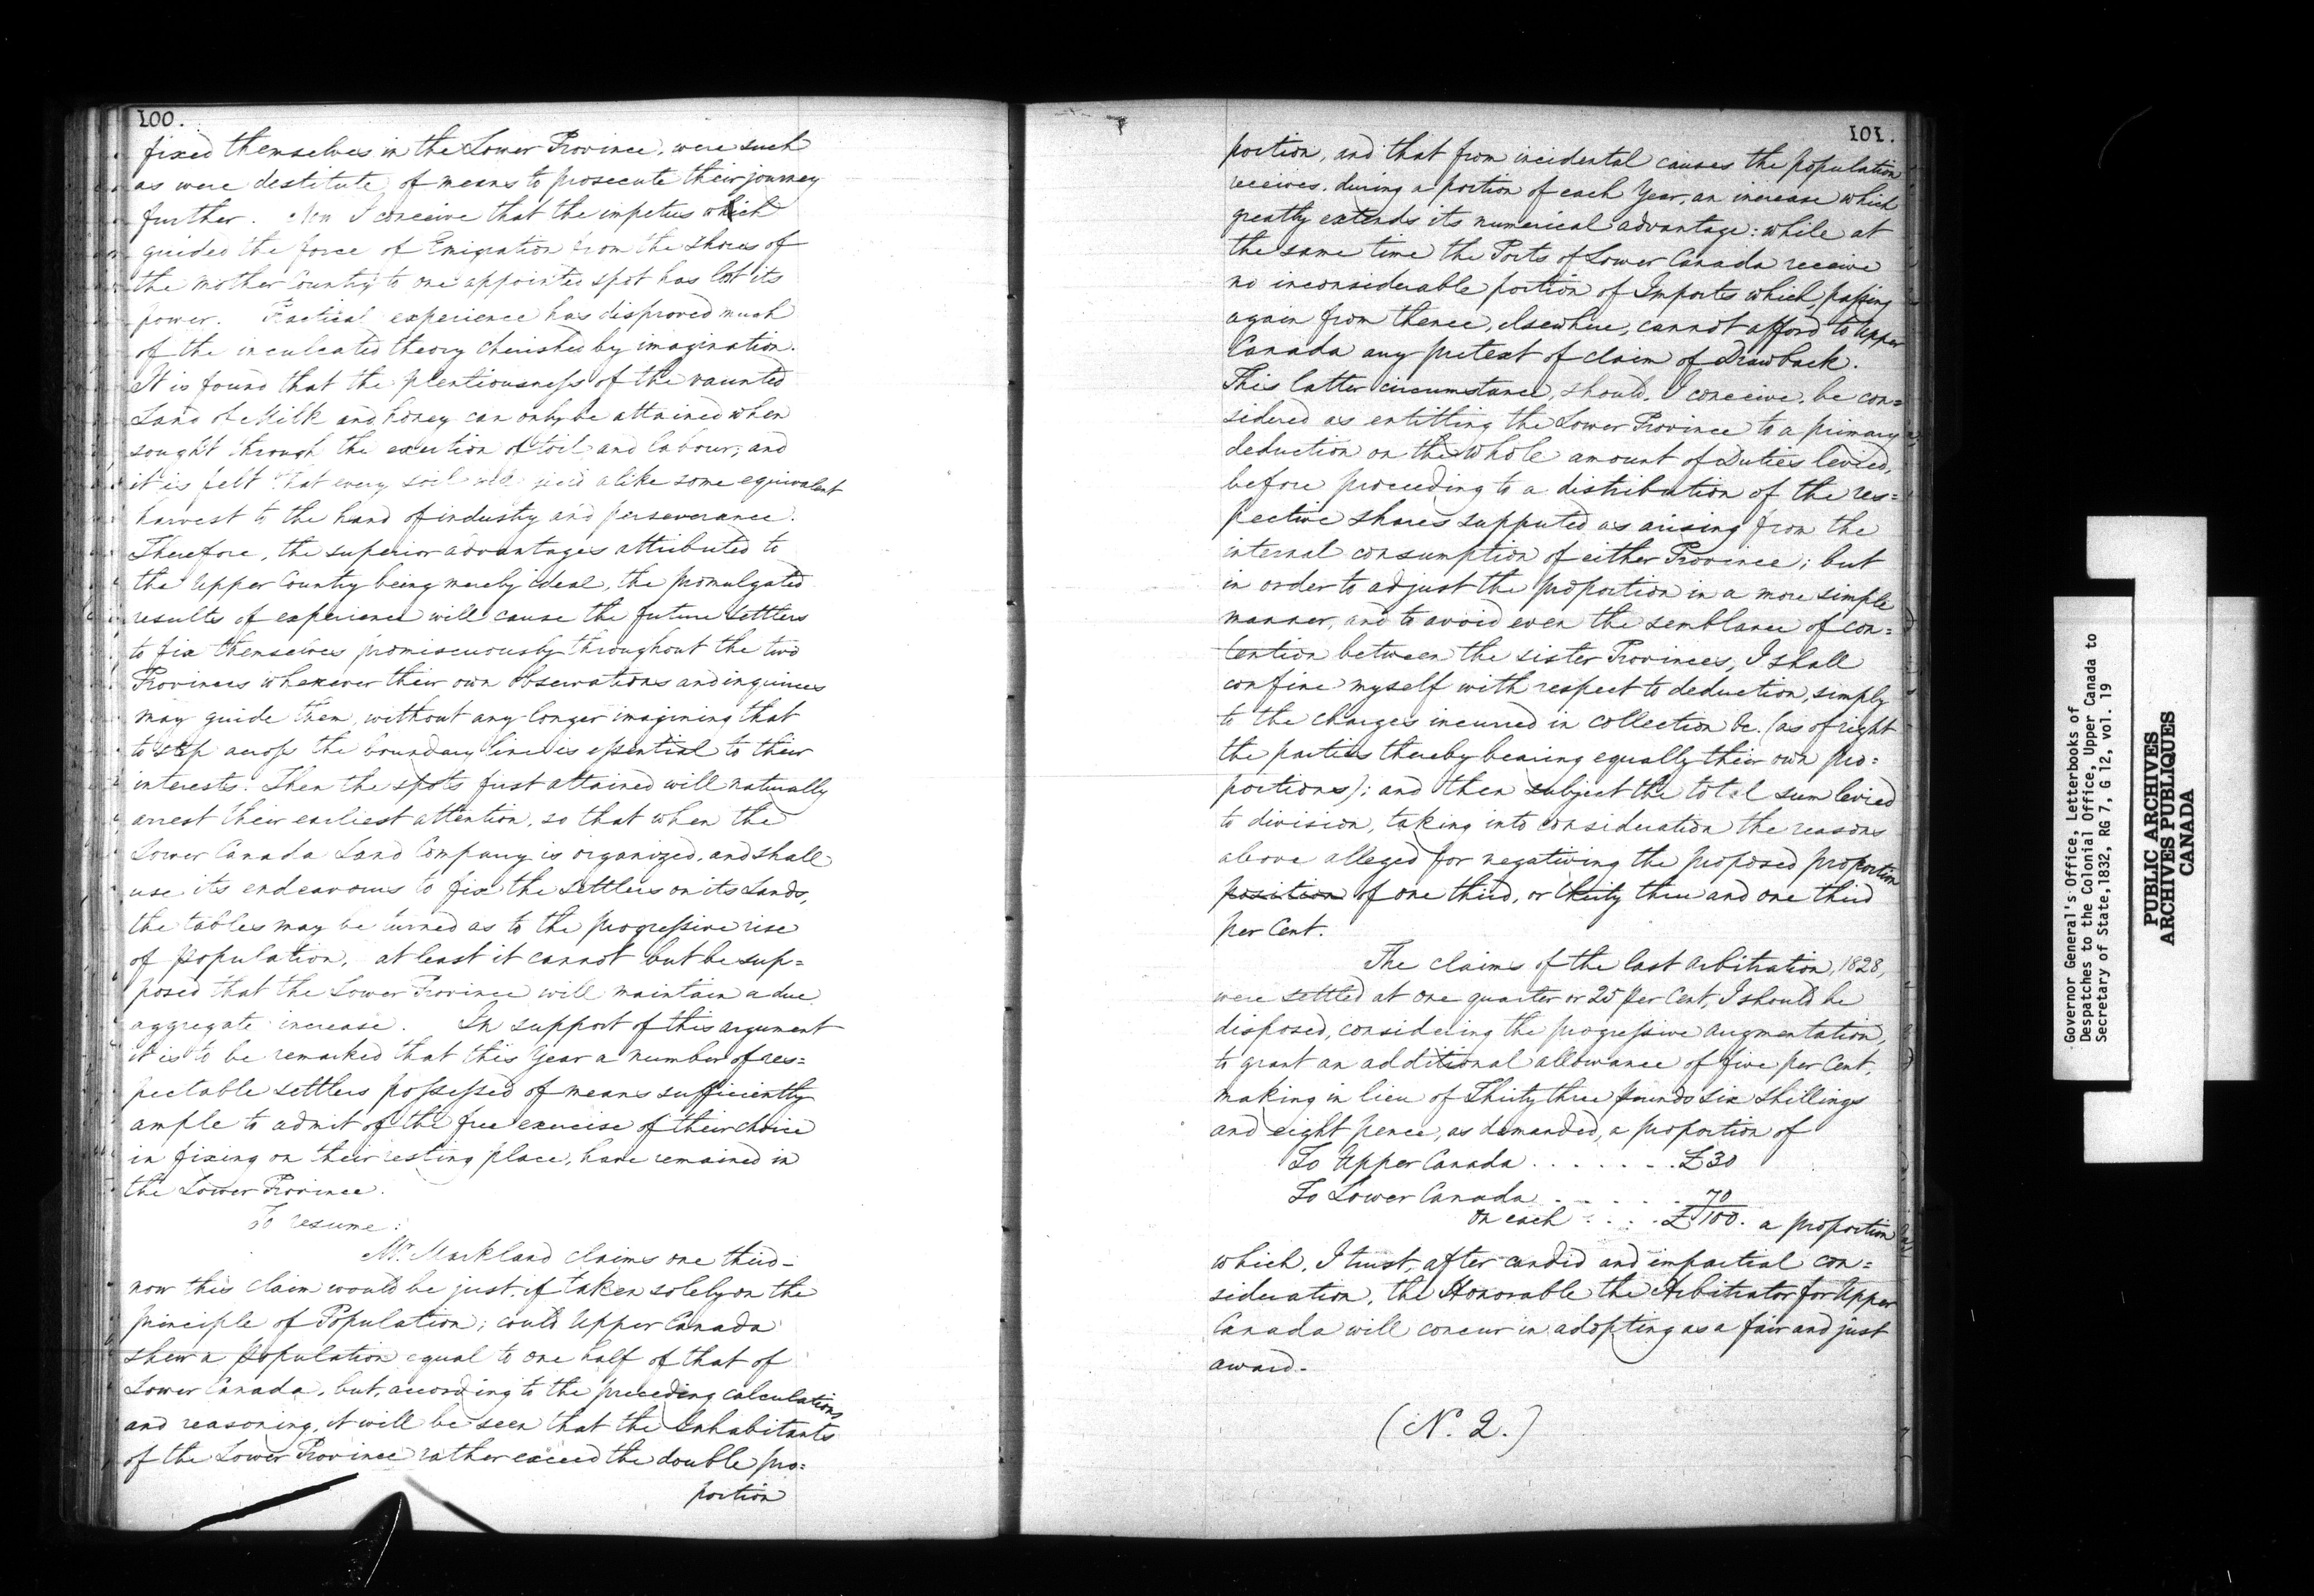 100.
fixed themselves in the Lower Province, were such
as were destitute of means to prosecute their journey
further. Now I conceive that the impetus which
guided the force of Emigration from the shores of
the Mother Country to one appointed spot has lost its
power. Practical experience has disproved much
of the inculcated theory cherished by imagination.
It is found that the plentiousness of the vaunted
Land of Milk and honey can only be attained when
sought through the exertion of toil and labour; and
it is felt that every soil will yield alike some equivalent
harvest to the hand of industry and perseverance.
Therefore, the superior advantages attributed to
the Upper Country being merely ideal, the promulgated
results of experience will cause the future settlers
to fix themselves promiscuously throughout the two
Provinces wherever their own observations and inquiries
may guide them, without any longer imagining that
to step across the boundary line is essential to their
interests. Then the spots first attained will naturally
arrest their earliest attention, so that when the
Lower Canada Land Company is organized, and shall
use its endeavours to fix the settlers on its Lands,
the tables may be turned as to the progressive rise
of population, at least it cannot but be sup=
posed that the Lower Province will maintain a due
aggregate increase. In support of this argument
it is to be remarked that this Year a number of res=
pectable settlers possessed of means sufficiently
ample to admit of the free exercise of their choice
in fixing on their resting place, have remained in
the Lower Province.
To resume:
Mr. Markland claims one third_
now this claim would be just, if taken solely on the
principle of Population; could Upper Canada
shew a population equal to one half of that of
Lower Canada, but, according to the preceding calculations
and reasoning, it will be seen that the Inhabitants
of the Lower Province rather exceed the double pro=
portion
101.
portion, and that from incidental causes the population
receives, during a portion of each Year, an increase which
greatly extends its numerical advantage: while at
the same time the Ports of Lower Canada receive
no inconsiderable portion of Imports which passing
again from thence, elsewhere, cannot afford to Upper
Canada any pretext of claim of Drawback.
This latter circumstance, should, I conceive, be con=
sidered as entitling the Lower Province to a primary
deduction on the whole amount of Duties levied,
before proceeding to a distribution of the res=
pective shares supputed as arising from the
internal consumption of either Province; but
in order to adjust the proportion in a more simple
manner, and to avoid even the semblance of con=
tention between the sister Provinces, I shall
confine myself with respect to deduction, simply
to the charges incurred in collection &c. (as of right
the parties thereby bearing equally their own pro=
portions); and then subject the total sum levied
to division, taking into consideration the reasons
above alleged for negativing the proposed proportion
position of one third, or thirty three and one third
per Cent.
The claims of the last Arbitration, 1828,
were settled at one quarter or 25 per Cent, I should be
disposed, considering the progressive augmentation,
to grant an additional allowance of five per Cent,
making in lieu of Thirty three pounds six Shillings
and eight pence, as demanded, a proportion of
To Upper Canada . . . . . . . £30
To Lower Canada . . . . . . 70
on each . . . . £100. a proportion
which, I trust, after candid and impartial con=
sideration, the Honorable the Arbitrator for Upper
Canada will concur in adopting as a fair and just
award.
(N. 2.)
Governor General's Office, Letterbooks of
Despatches to the Colonial Office, Upper Canada to
Secretary of State,1832, RG 7, G 12, vol. 19
PUBLIC ARCHIVES
ARCHIVES PUBLIQUES
CANADA